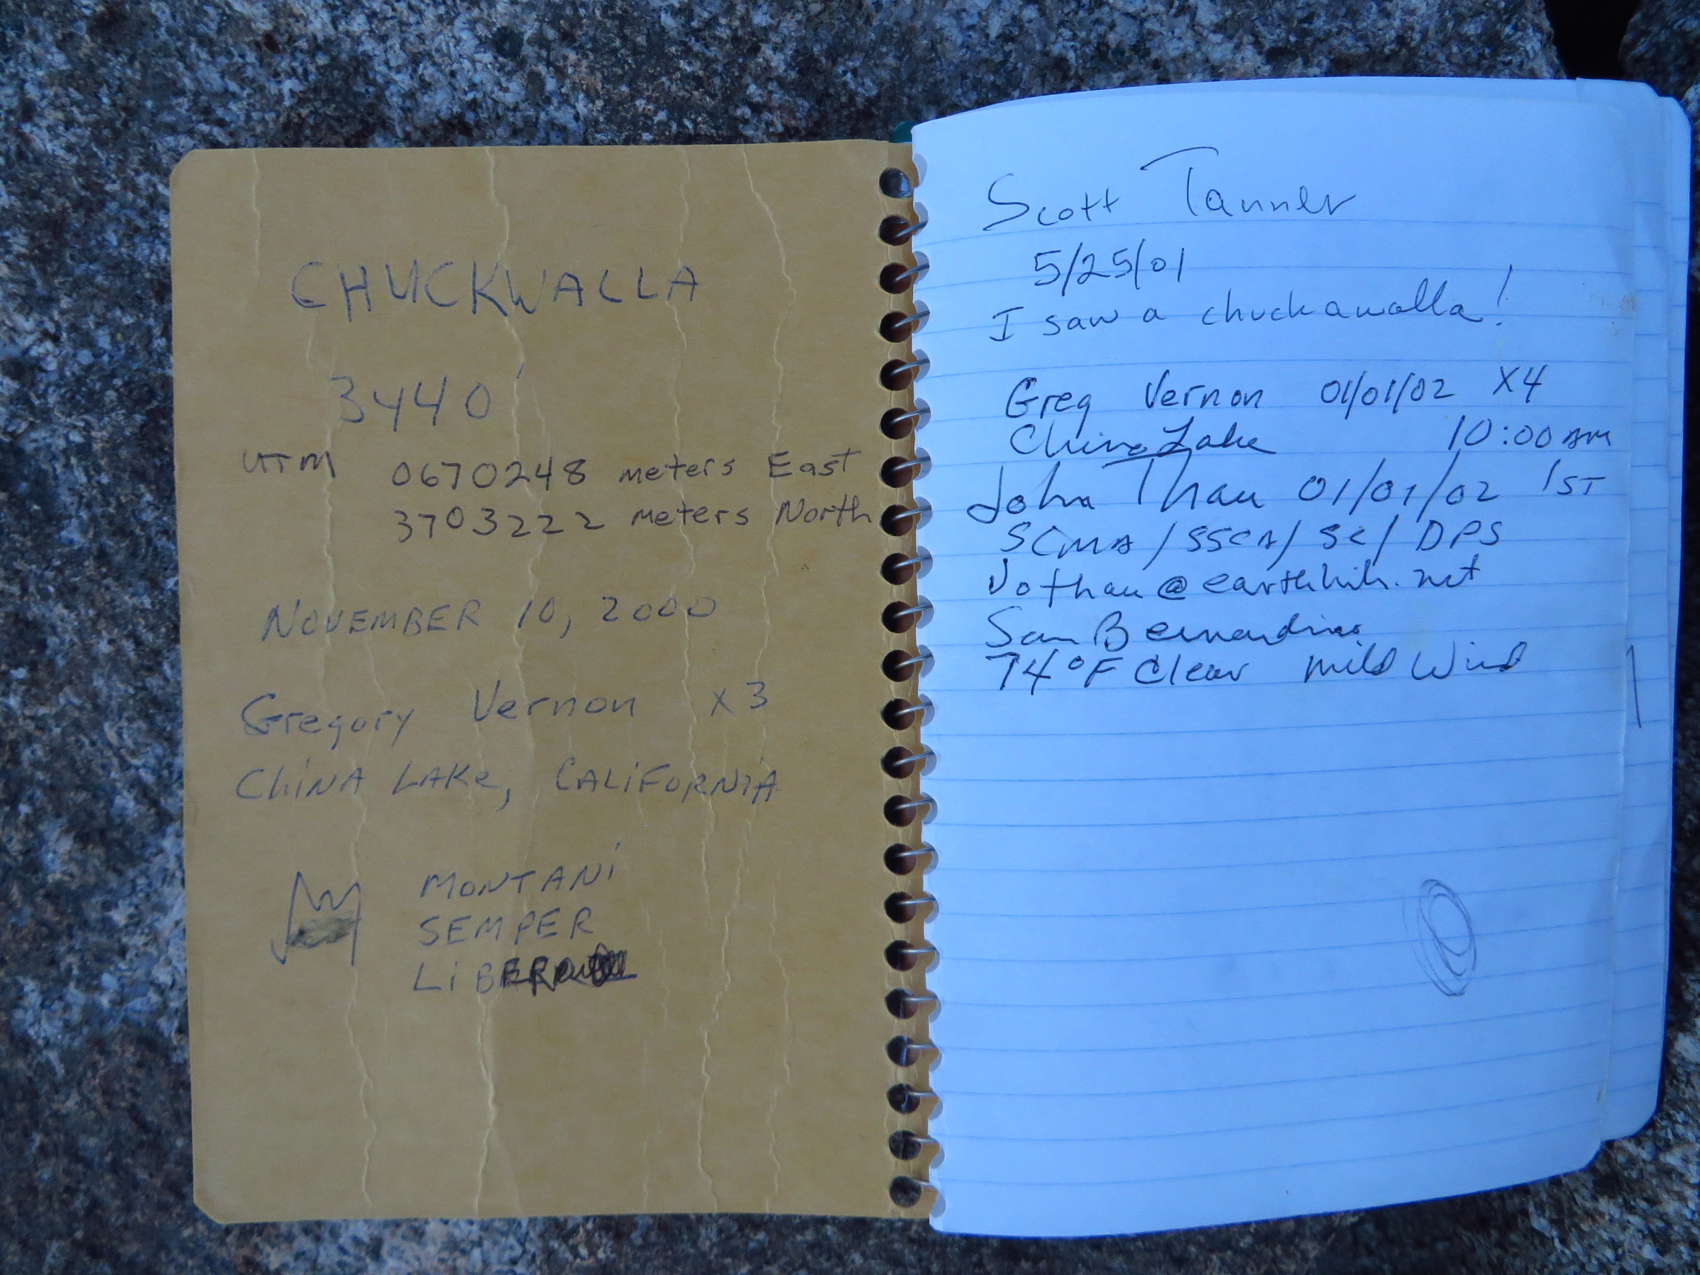 CHUCKWALLA
3440'
UTM 0670248 meters East
3703222 meters North
NOVEMBER 10, 2000
Gregory Vernon X3
CHINA LAKE, CALIFORNIA
MONTANI
SEMPER
Scott Tanner
5/25/01
I saw a chuckawalla!
Greg Vernon 01/01/02 X4
China Lake 10:00 AM
John Thau 01/01/02 1ST
SCMA/SSCA/SC/DPS
San Bernardino
74°F Clear Mild Wind